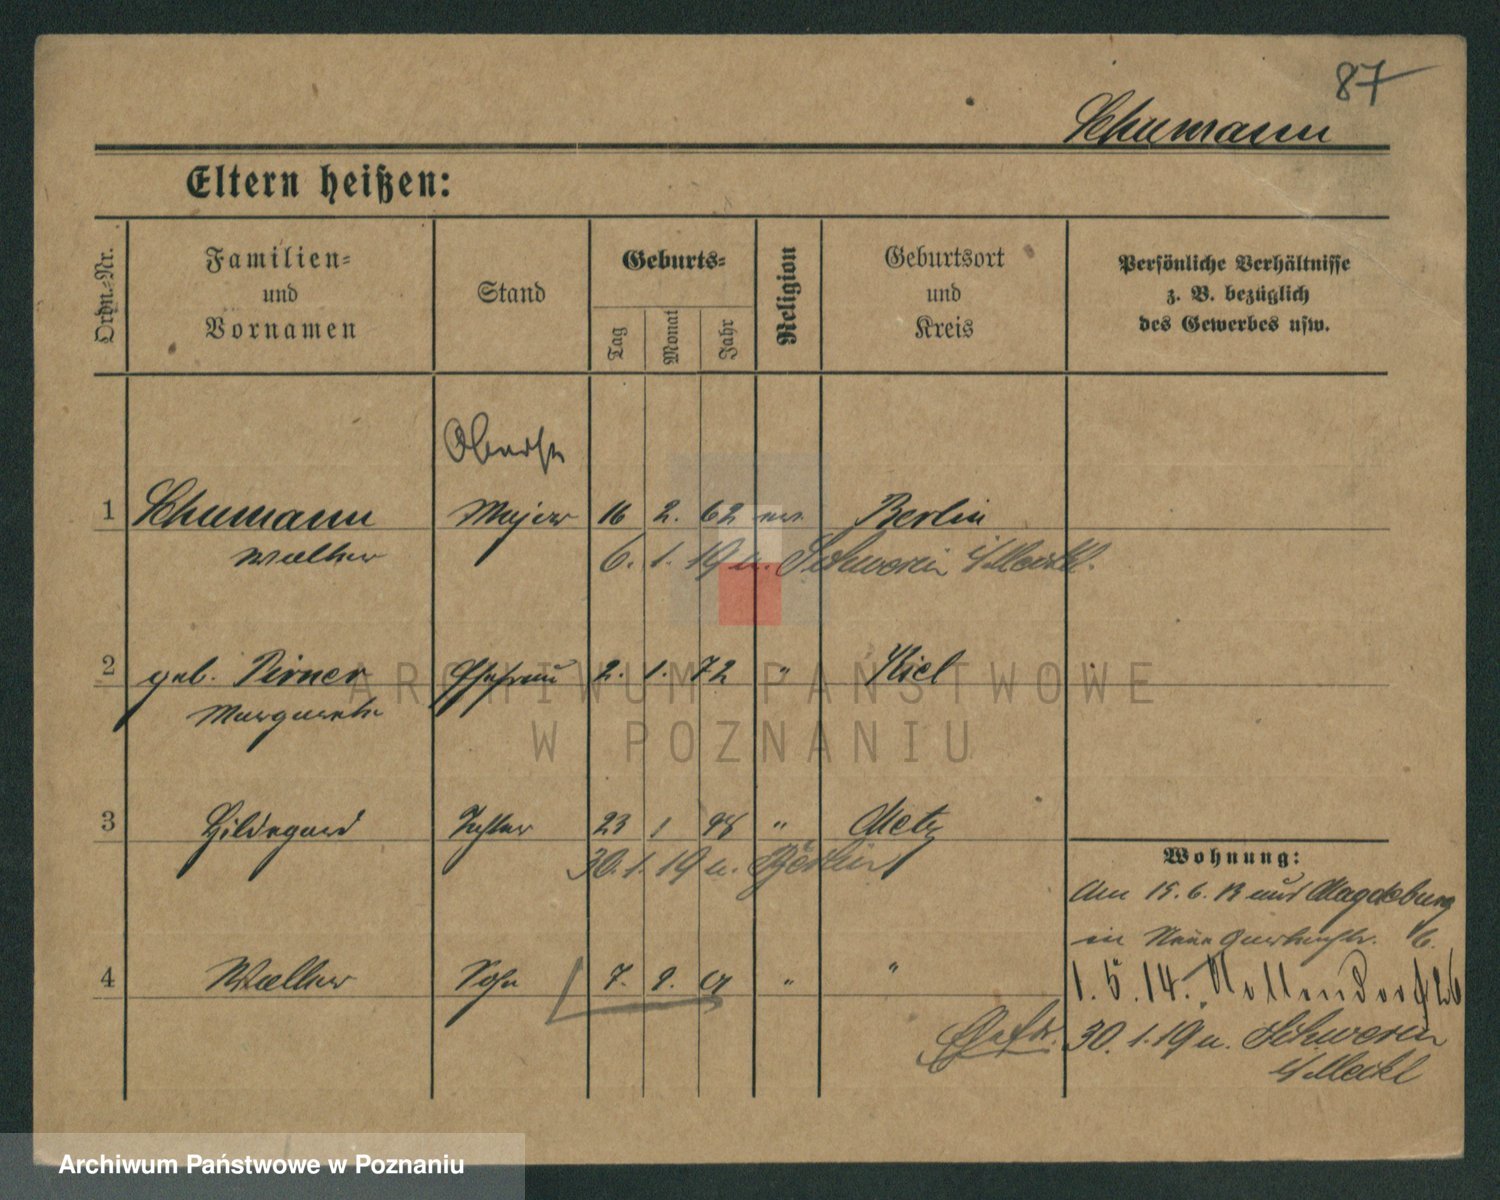 87
Schumann
Eltern heißen:
Ordn.-Nr.
Familien-
und
Vornamen
Stand
Geburts-
Tag
Monat
Jahr
Religion
Geburtsort
und
Kreis
Persönliche Verhältnisse
z. B. bezüglich
des Gewerbes usw.
Oberstl
1 Schumann Major 16 2. 62 ev. Berlin
Walther
6. 1. 19 n. Schwerin i/Meckl.
2 geb. Pirner Ehefrau 2. 1. 72 " Kiel
Margarete
3 Hildegard Tochter 23 1 98 " Metz
30. 1. 19 n. Berlin
Wohnung:
Am 15. 6. 13 aus Magdeburg
in Neue Gartenstr.
4 Walther Sohn 7. 9. 01 " "
1. 5. 14. Nollendorfstr 26
Ehefr. 30. 1. 19 n. Schwerin
i/Meckl
ARCHIWUM PAŃSTWOWE
W POZNANIU
Archiwum Państwowe w Poznaniu